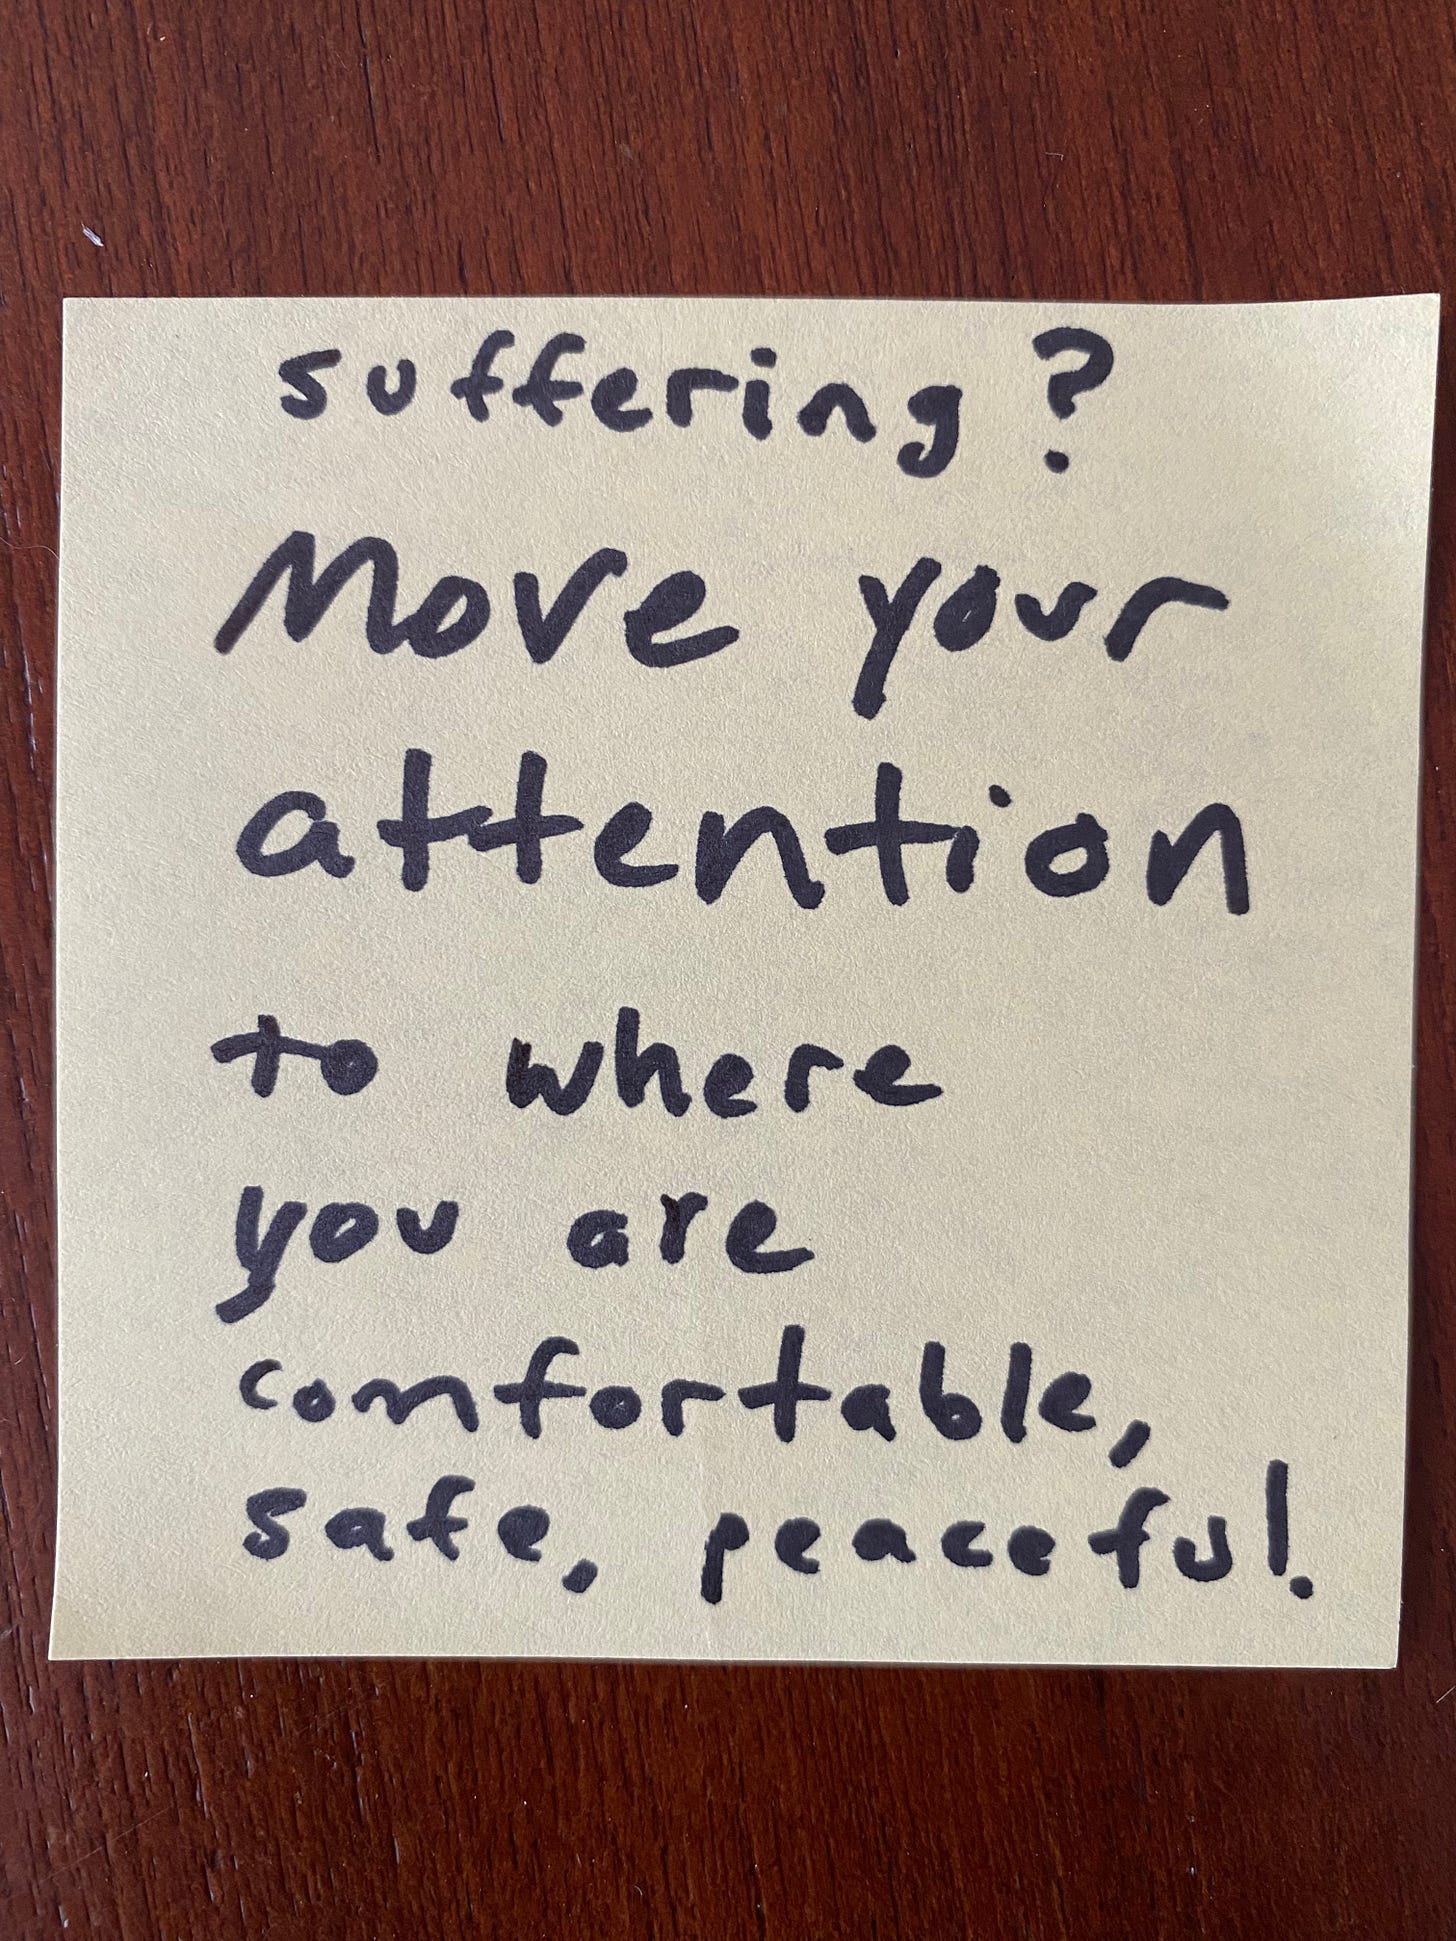 suffering?
Move your
attention
to where
you are
comfortable,
safe, peaceful.